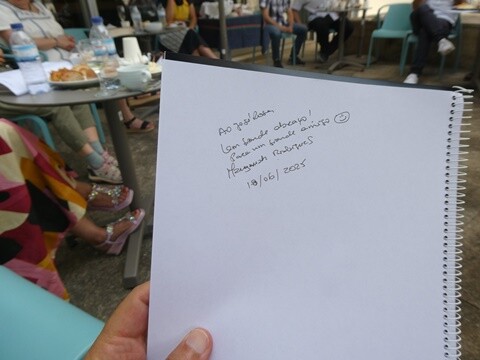 Ao José Rosa
Um grande abraço!
para um grande amigo
Margarida Rodrigues
18/06/2025